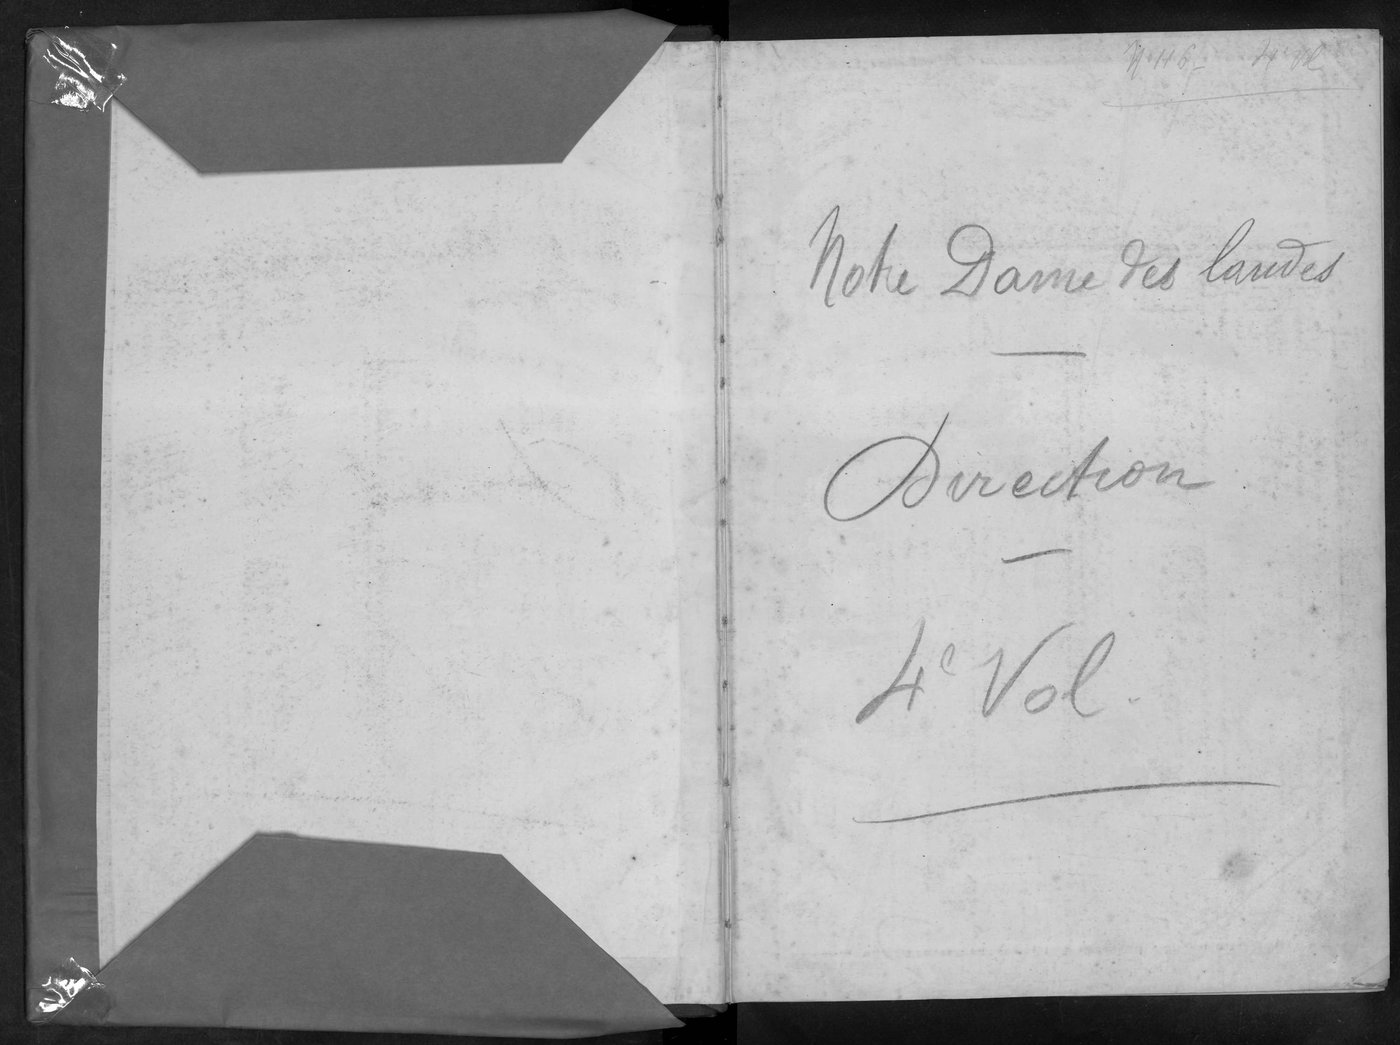 4e Vol
Notre Dame des landes
Direction
4e Vol.